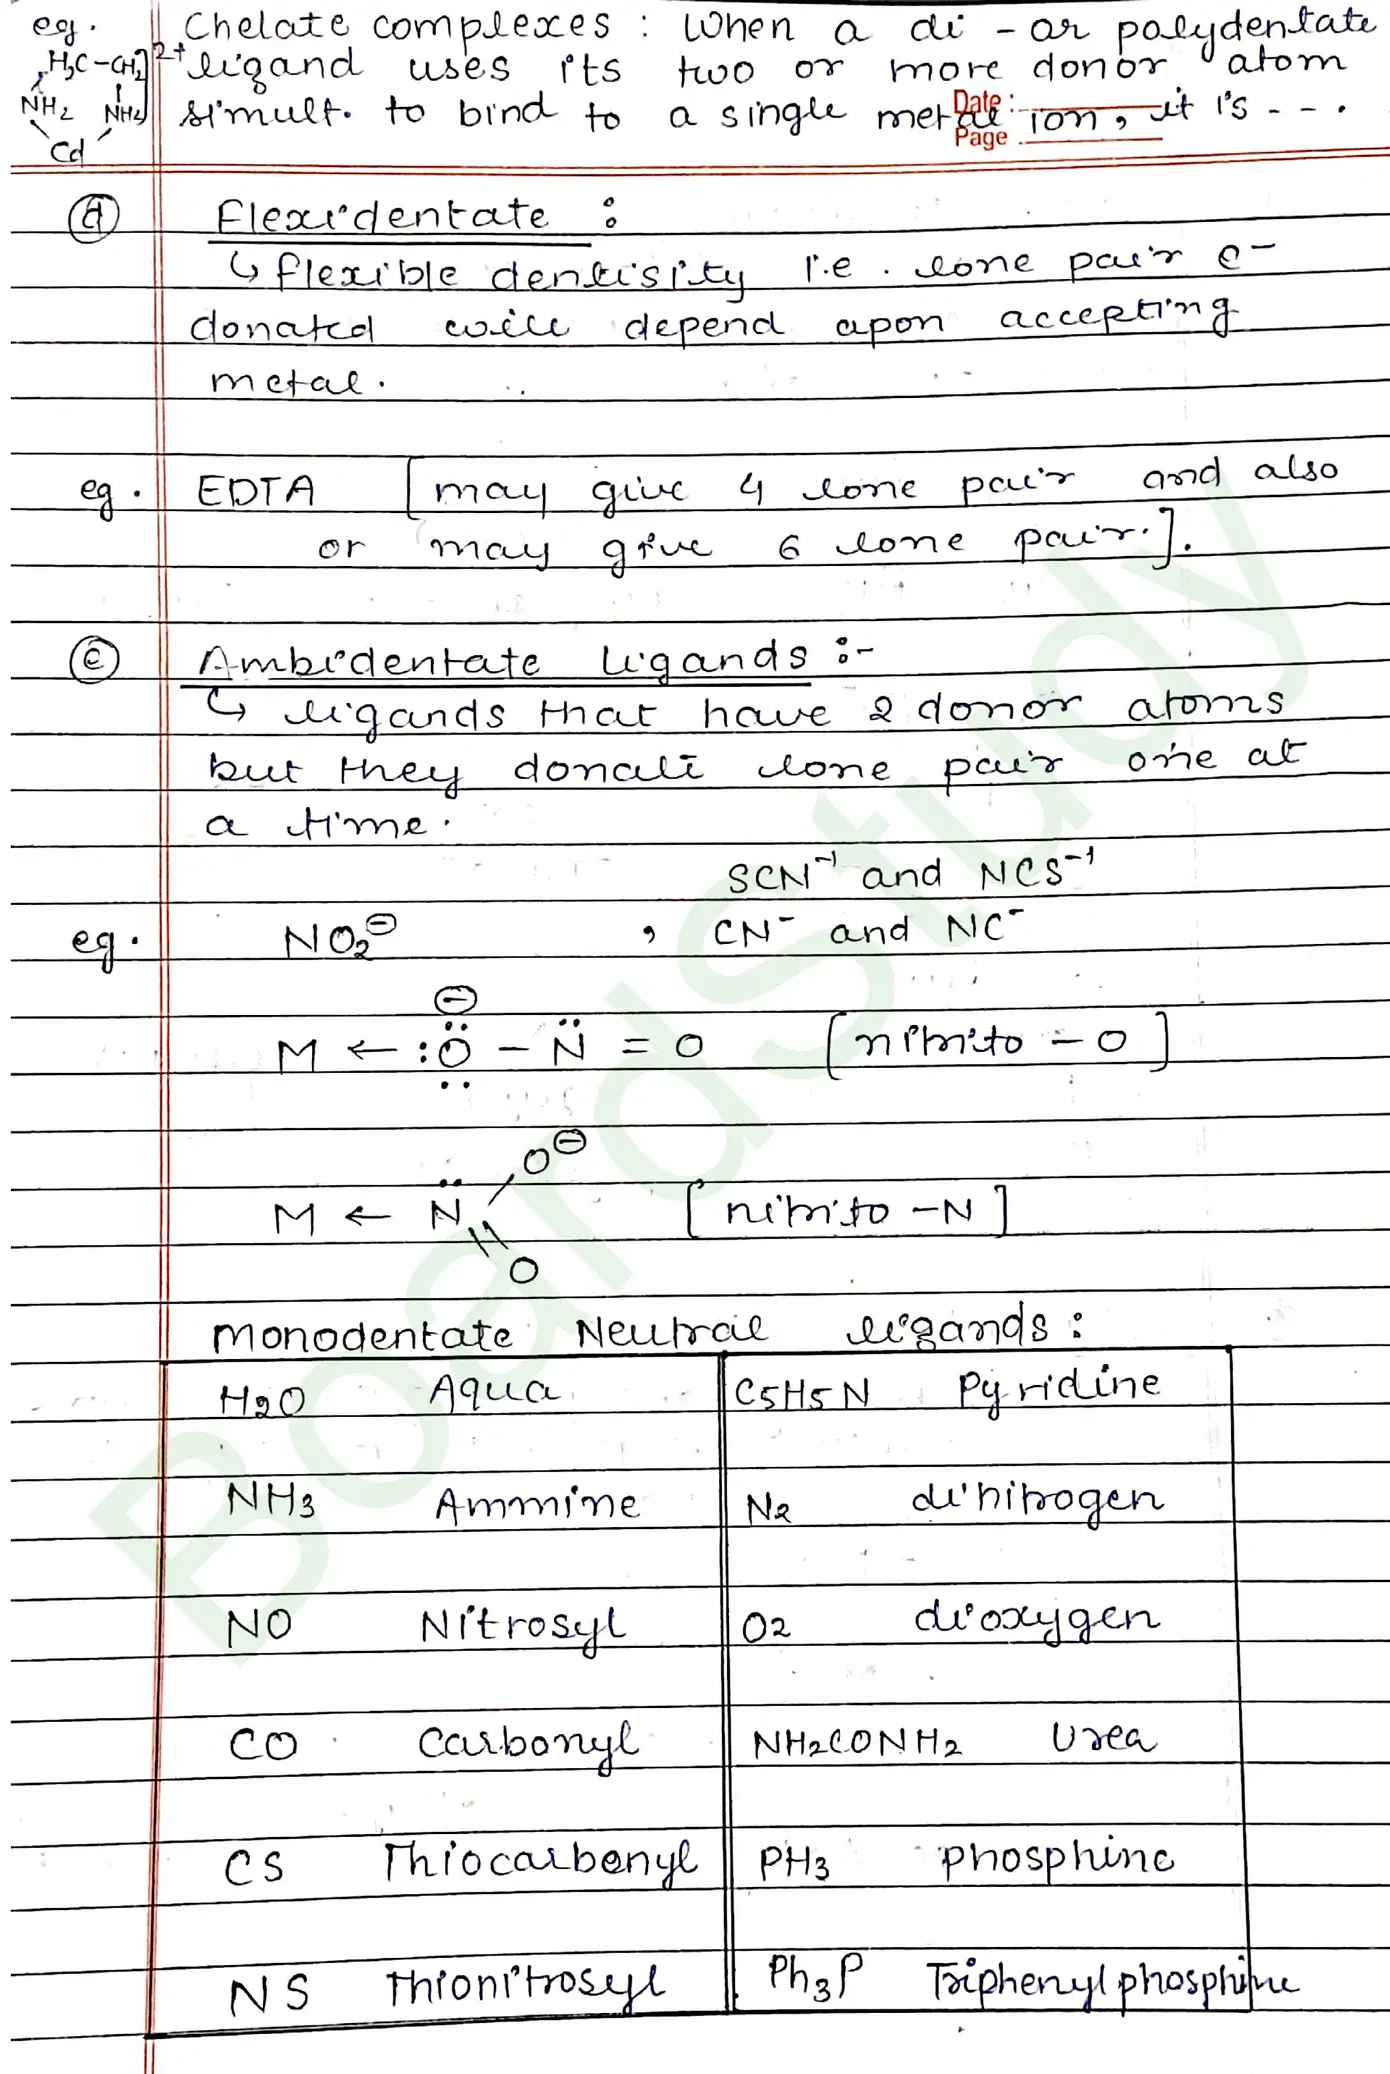 eg. Chelate complexes : When a di - or polydentate
H2C - CH2]2+ ligand uses its two or more donor atom
NH2 NH2 simult. to bind to a single metal ion, it is - - - .
Cd
Date :
Page
(d) Flexidentate :
↳ flexible dentisity i.e. lone pair e-
donated will depend apon accepting
metal.
eg. EDTA [may give 4 lone pair and also
or may give 6 lone pair.].
(e) Ambidentate ligands :-
↳ ligands that have 2 donor atoms
but they donate lone pair one at
a time.
SCN⁻¹ and NCS⁻¹
eg. NO2⊖ , CN⁻ and NC⁻
⊖
M ← :Ö - N̈ = O [nitrito - O]
O⊖
M ← N̈ [nitrito - N]
O
Monodentate Neutral ligands :
H2O Aqua C5H5N Pyridine
NH3 Ammine N2 dinitrogen
NO Nitrosyl O2 dioxygen
CO Carbonyl NH2CONH2 Urea
CS Thiocarbonyl PH3 Phosphine
NS Thionitrosyl Ph3P Triphenylphosphine
BoardStudy